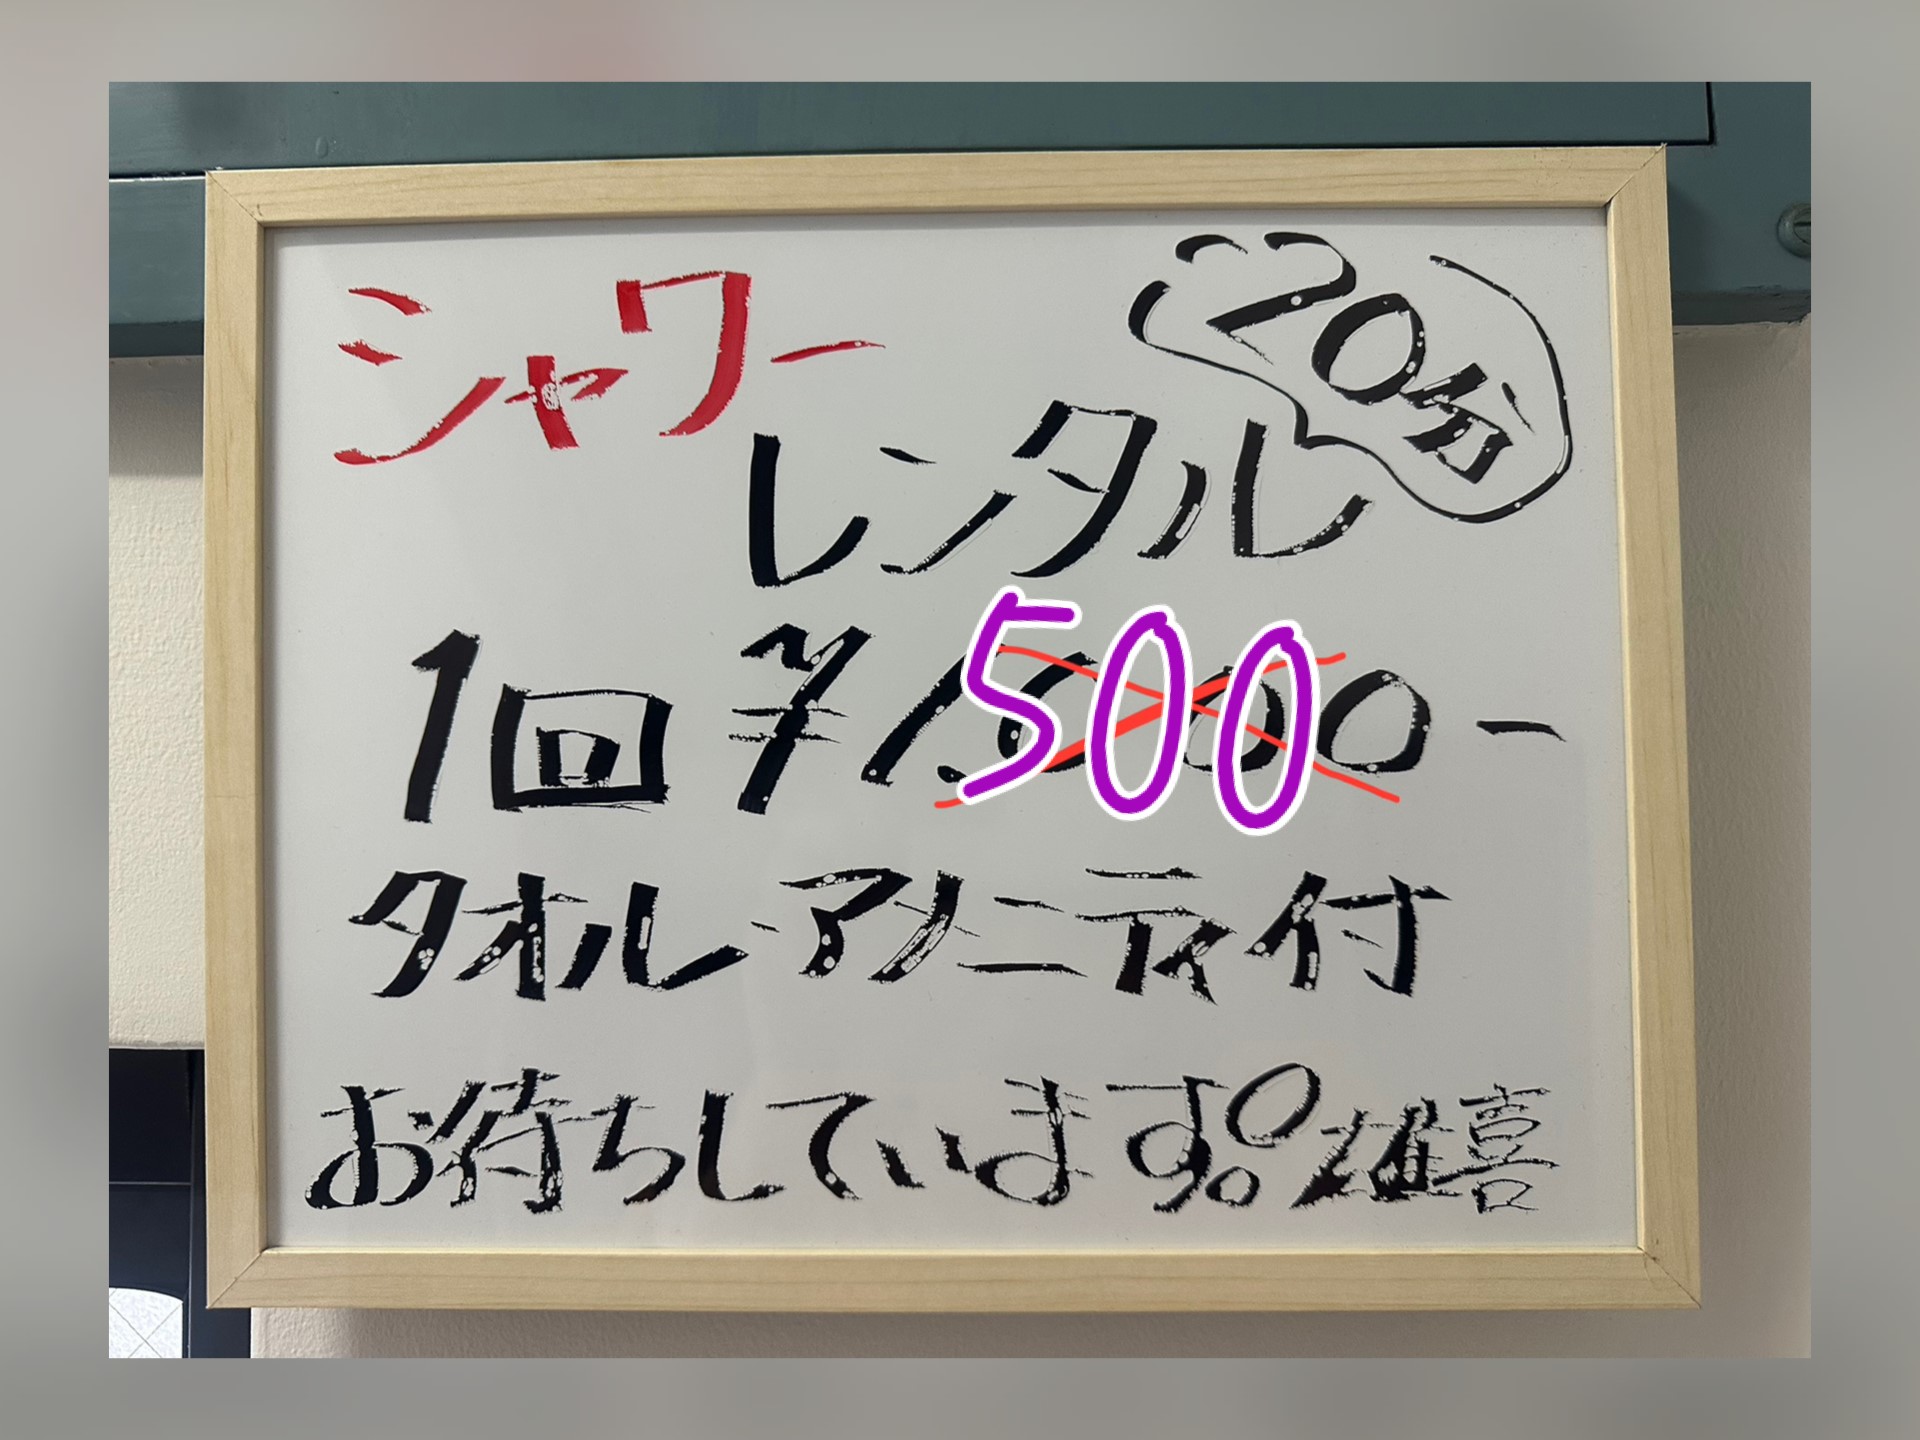 シャワー
レンタル
20分
1回 ¥1,000-
500
タオル・アメニティ付
お待ちしています。雄喜